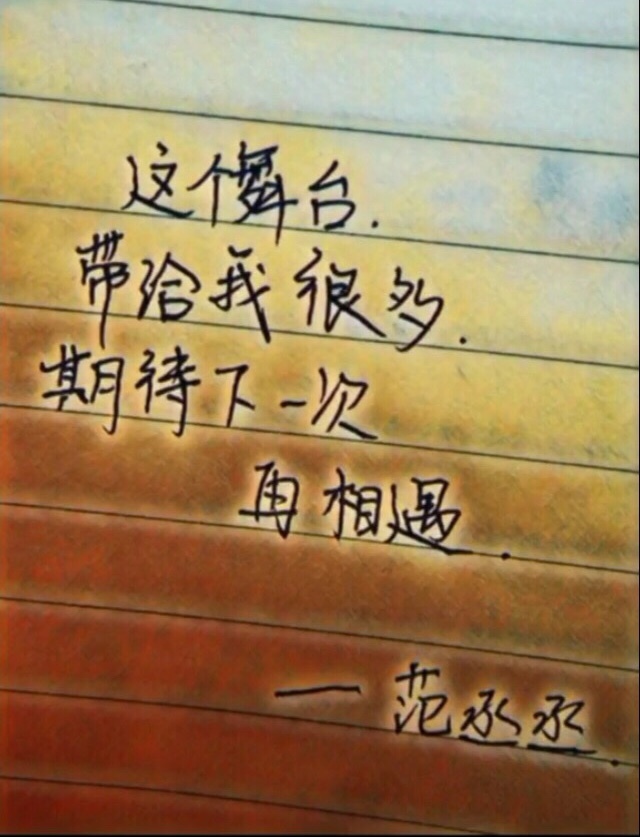 这个舞台.
带给我很多.
期待下一次
再相遇.
—范丞丞.